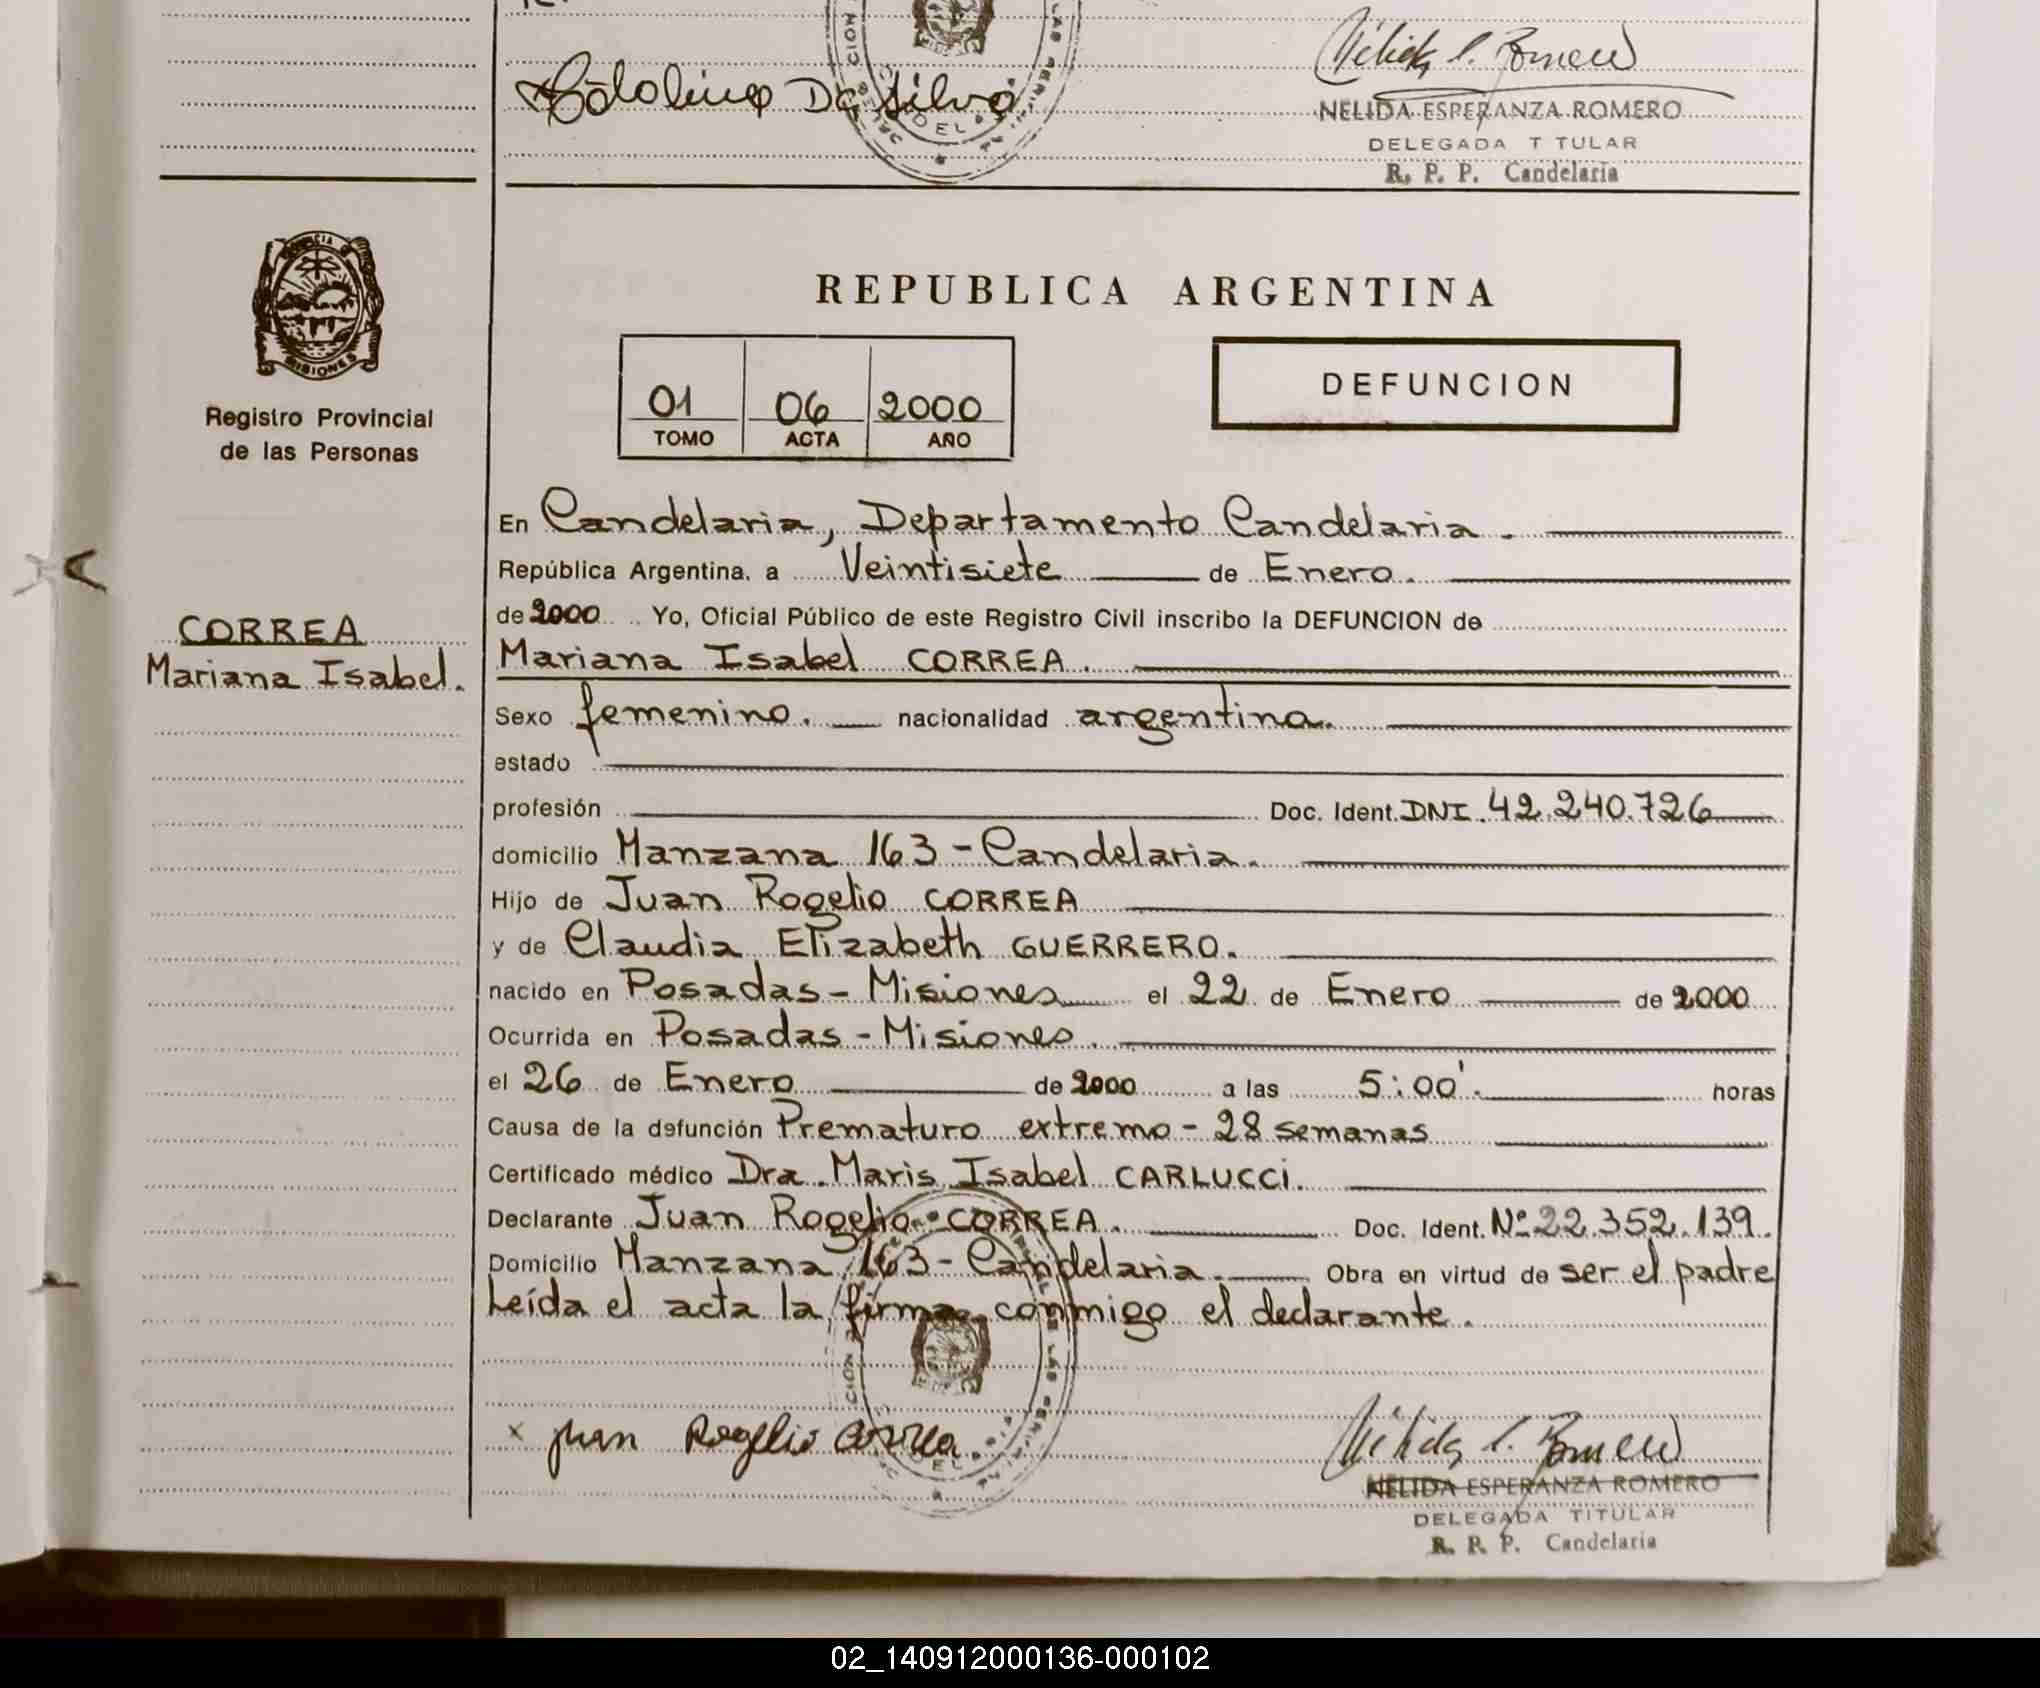 Cololino Da Silva
NELIDA ESPERANZA ROMERO
DELEGADA T TULAR
R. P. P. Candelaria
MISIONES
Registro Provincial
de las Personas
REPUBLICA ARGENTINA
01 06 2000
TOMO ACTA AÑO
DEFUNCION
CORREA
Mariana Isabel.
En Candelaria, Departamento Candelaria.
República Argentina, a Veintisiete de Enero.
de 2000 Yo, Oficial Público de este Registro Civil inscribo la DEFUNCION de
Mariana Isabel CORREA.
Sexo femenino. nacionalidad argentina.
estado
profesión Doc. Ident. DNI. 42.240.726
domicilio Manzana 163 - Candelaria.
Hijo de Juan Rogelio CORREA
y de Claudia Elizabeth GUERRERO.
nacido en Posadas - Misiones el 22 de Enero de 2000
Ocurrida en Posadas - Misiones.
el 26 de Enero de 2000 a las 5:00'. horas
Causa de la defunción Prematuro extremo - 28 semanas
Certificado médico Dra. Maris Isabel CARLUCCI.
Declarante Juan Rogelio CORREA. Doc. Ident. Nº 22.352.139.
Domicilio Manzana 163 - Candelaria. Obra en virtud de ser el padre
Leída el acta la firma conmigo el declarante.
x Juan Rogelio Correa
NELIDA ESPERANZA ROMERO
DELEGADA TITULAR
R. P. P. Candelaria
02_140912000136-000102